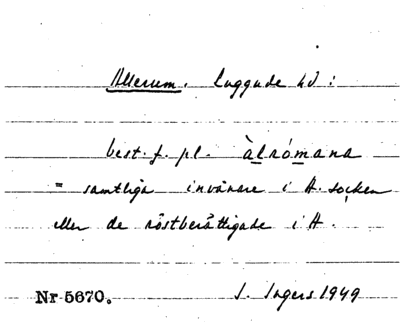 Allerum. Luggude hd:
best. f. pl. àlrómana
= samtliga invånare i A. socken
eller de röstberättigade i A.
Nr 5670. I. Ingers 1949